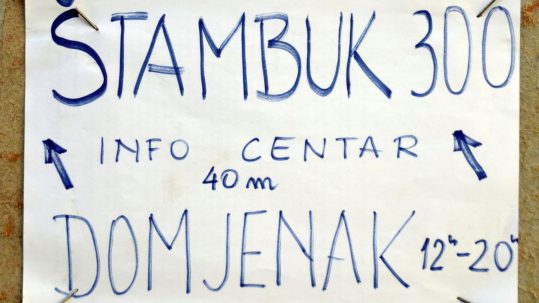 ŠTAMBUK 300
INFO CENTAR
40 m
DOMJENAK 12ʰ-20ʰ